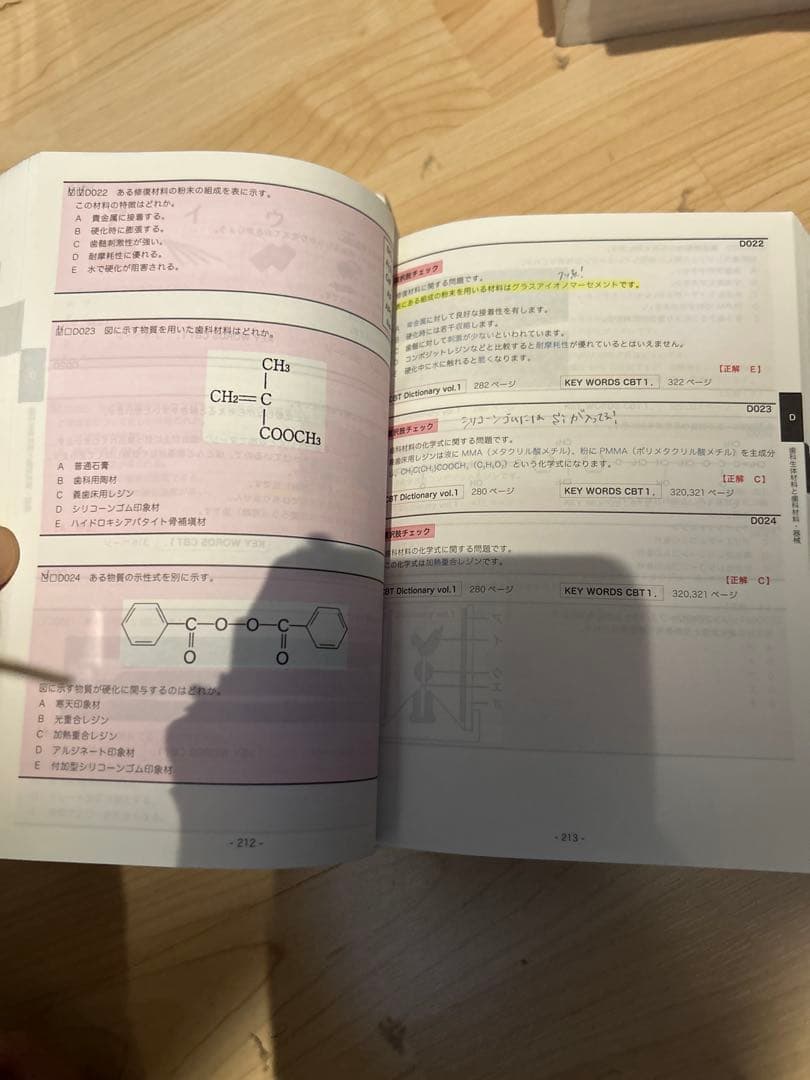 D022 ある修復材料の粉末の組成を表に示す。
この材料の特徴はどれか。
A 貴金属に接着する。
B 硬化時に膨張する。
C 歯髄刺激性が強い。
D 耐摩耗性に優れる。
E 水で硬化が阻害される。
D023 図に示す物質を用いた歯科材料はどれか。
CH₃
CH₂=C
COOCH₃
A 普通石膏
B 歯科用陶材
C 義歯床用レジン
D シリコーンゴム印象材
E ハイドロキシアパタイト骨補塡材
D024 ある物質の示性式を別に示す。
C-O-O-C
O O
図に示す物質が硬化に関与するのはどれか。
A 寒天印象材
B 光重合レジン
C 加熱重合レジン
D アルジネート印象材
E 付加型シリコーンゴム印象材
- 212 -
D022
選択肢チェック
修復材料に関する問題です。
表にある組成の粉末を用いる材料はグラスアイオノマーセメントです。
貴金属に対して良好な接着性を有します。
硬化時には若干収縮します。
歯髄に対して刺激が少ないといわれています。
コンポジットレジンなどと比較すると耐摩耗性が優れているとはいえません。
硬化中に水に触れると脆くなります。
【正解 E】
CBT Dictionary vol.1 282 ページ KEY WORDS CBT 1. 322 ページ
D023
シリコーンゴムには Si が入ってる!
選択肢チェック
歯科材料の化学式に関する問題です。
義歯床用レジンは液に MMA（メタクリル酸メチル）、粉に PMMA（ポリメタクリル酸メチル）を主成分
という化学式になります。
【正解 C】
CBT Dictionary vol.1 280 ページ KEY WORDS CBT 1. 320,321 ページ
D024
選択肢チェック
歯科材料の化学式に関する問題です。
この化学式は加熱重合レジンです。
【正解 C】
CBT Dictionary vol.1 280 ページ KEY WORDS CBT 1. 320,321 ページ
D
歯科生体材料と歯科材料・器械
- 213 -